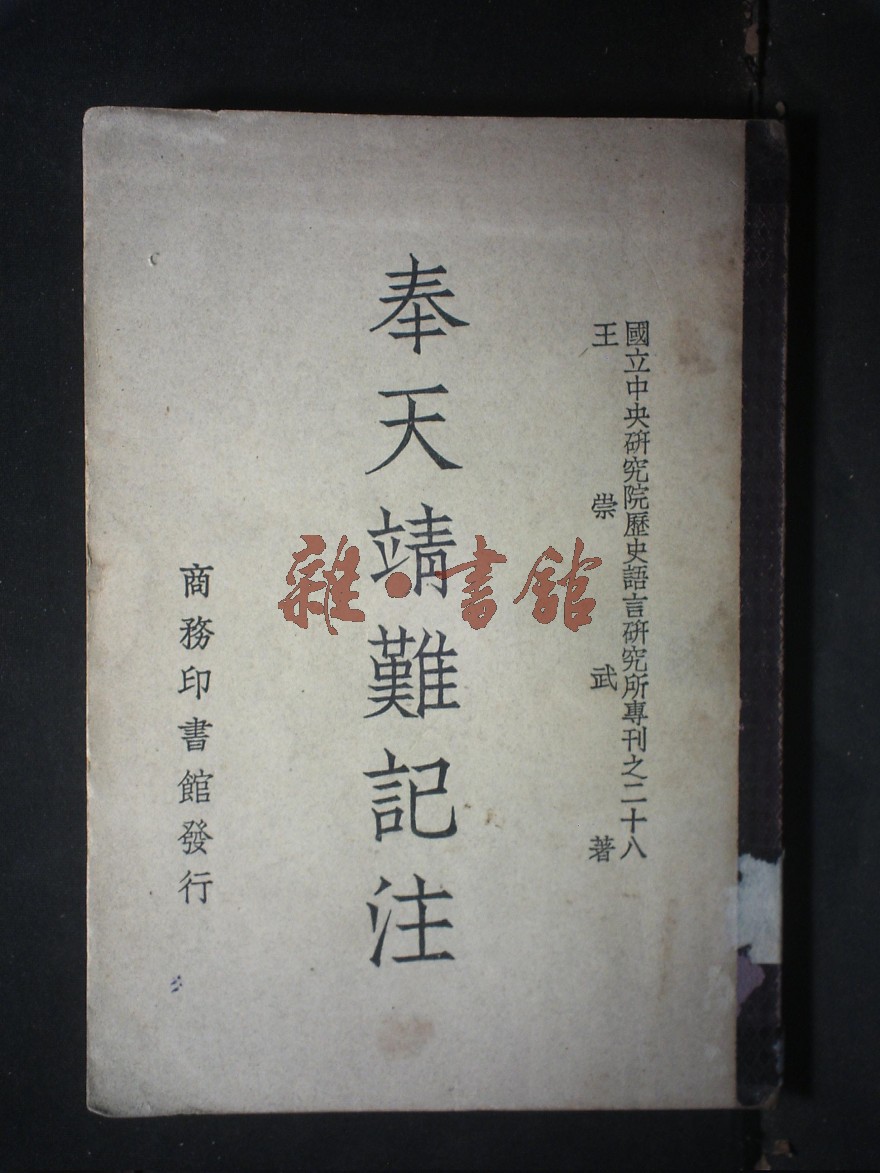 國立中央研究院歷史語言研究所專刊之二十八
王崇武著
奉天靖難記注
商務印書館發行
雜·書館